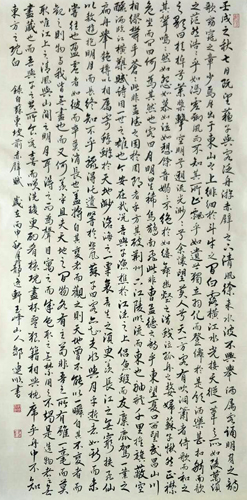 壬戌之秋七月既望蘇子與客泛舟遊於赤壁之下清風徐來水波不興舉酒屬客誦明月之詩
歌窈窕之章少焉月出於東山之上徘徊於斗牛之間白露橫江水光接天縱一葦之所如凌萬頃
之茫然浩浩乎如馮虛御風而不知其所止飄飄乎如遺世獨立羽化而登仙於是飲酒樂甚扣舷而
歌之歌曰桂棹兮蘭槳擊空明兮溯流光渺渺兮予懷望美人兮天一方客有吹洞簫者倚歌而和之
其聲嗚嗚然如怨如慕如泣如訴餘音嫋嫋不絕如縷舞幽壑之潛蛟泣孤舟之嫠婦蘇子愀然正襟
危坐而問客曰何為其然也客曰月明星稀烏鵲南飛此非曹孟德之詩乎西望夏口東望武昌山川
相繆鬱乎蒼蒼此非孟德之困於周郎者乎方其破荊州下江陵順流而東也舳艫千里旌旗蔽空
釃酒臨江橫槊賦詩固一世之雄也而今安在哉況吾與子漁樵於江渚之上侶魚蝦而友麋鹿駕一葉之
扁舟舉匏樽以相屬寄蜉蝣於天地渺滄海之一粟哀吾生之須臾羨長江之無窮挾飛仙
以遨遊抱明月而長終知不可乎驟得託遺響於悲風蘇子曰客亦知夫水與月乎逝者如斯而未
嘗往也盈虛者如彼而卒莫消長也蓋將自其變者而觀之則天地曾不能以一瞬自其不變者而觀
之則物與我皆無盡也而又何羨乎且夫天地之間物各有主苟非吾之所有雖一毫而莫
取惟江上之清風與山間之明月耳得之而為聲目遇之而成色取之無禁用之不竭是造物者之無
盡藏也而吾與子之所共適客喜而笑洗盞更酌肴核既盡杯盤狼籍相與枕藉乎舟中不知
東方之既白 錄自蘇東坡前赤壁賦 歲在丙 秋月 山人 書